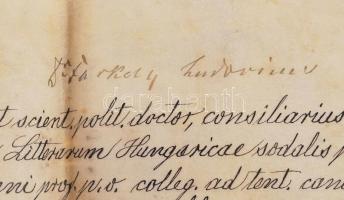 Dr. Farkas Ludovicus
t scient. polit. doctor, consiliarius
Litterarum Hungaricae sodalis p
ani prof. p. o. colleg. ad tent. cand